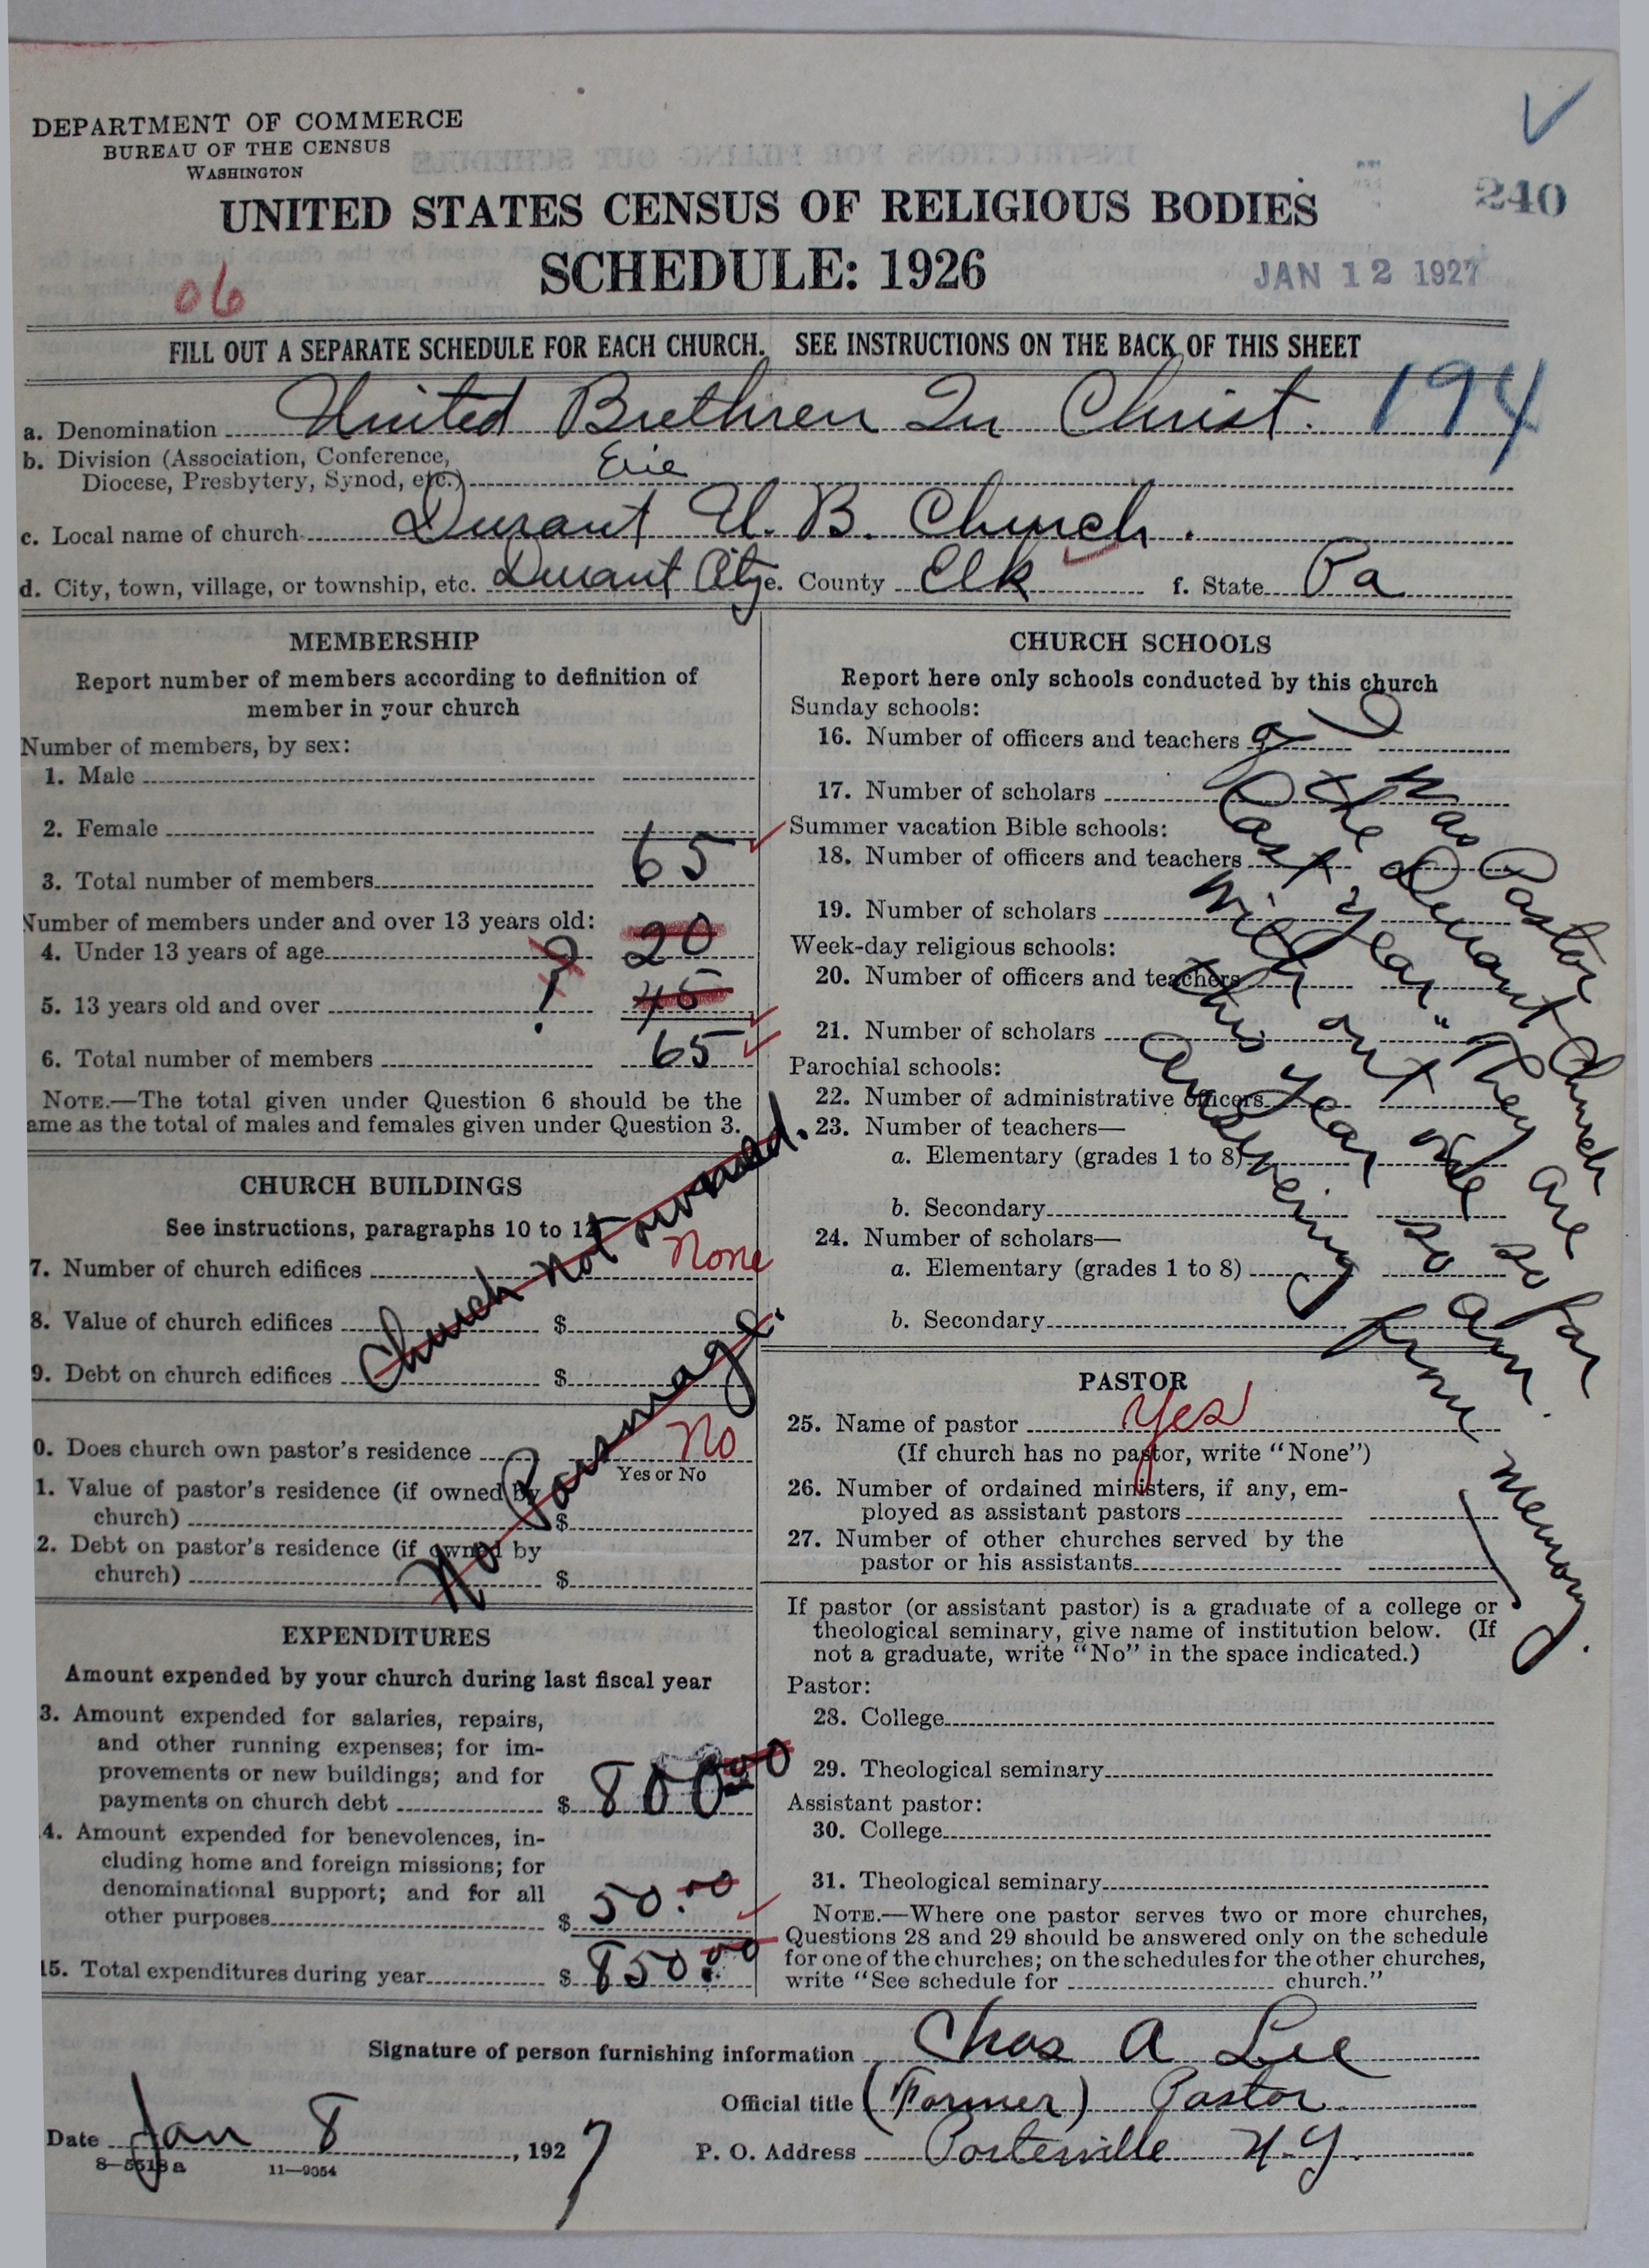 DEPARTMENT OF COMMERCE
BUREAU OF THE CENSUS
WASHINGTON
UNITED STATES CENSUS OF RELIGIOUS BODIES
240
SCHEDULE: 1926
JAN 12 1927
06
FILL OUT A SEPARATE SCHEDULE FOR EACH CHURCH. SEE INSTRUCTIONS ON THE BACK OF THIS SHEET
194
a. Denomination United Brethren In Christ.
b. Division (Association, Conference,
Diocese, Presbytery, Synod, etc.) Erie
c. Local name of church Durant U. B. Church.
d. City, town, village, or township, etc. Durant City e. County Elk f. State Pa
MEMBERSHIP
Report number of members according to definition of
member in your church
Number of members, by sex:
1. Male
2. Female
3. Total number of members 65
Number of members under and over 13 years old:
4. Under 13 years of age ? 20
5. 13 years old and over ! 45
6. Total number of members 65
NOTE.—The total given under Question 6 should be the
ame as the total of males and females given under Question 3.
CHURCH BUILDINGS
See instructions, paragraphs 10 to 12
7. Number of church edifices None
8. Value of church edifices $
9. Debt on church edifices $
Church not owned.
0. Does church own pastor's residence No
Yes or No
1. Value of pastor's residence (if owned by
church) $
2. Debt on pastor's residence (if owned by
church) $
No Parsonage.
EXPENDITURES
Amount expended by your church during last fiscal year
3. Amount expended for salaries, repairs,
and other running expenses; for im-
provements or new buildings; and for
payments on church debt $ 800.00
4. Amount expended for benevolences, in-
cluding home and foreign missions; for
denominational support; and for all
other purposes $ 50.00
15. Total expenditures during year $ 850.00
CHURCH SCHOOLS
Report here only schools conducted by this church
Sunday schools:
16. Number of officers and teachers
17. Number of scholars
Summer vacation Bible schools:
18. Number of officers and teachers
19. Number of scholars
Week-day religious schools:
20. Number of officers and teachers
21. Number of scholars
Parochial schools:
22. Number of administrative officers
23. Number of teachers—
a. Elementary (grades 1 to 8)
b. Secondary
24. Number of scholars—
a. Elementary (grades 1 to 8)
b. Secondary
I was Pastor
of the Durant Church
Last year. They are so far
with out one so am
this year
answering from memory.
PASTOR
25. Name of pastor Yes
(If church has no pastor, write "None")
26. Number of ordained ministers, if any, em-
ployed as assistant pastors
27. Number of other churches served by the
pastor or his assistants
If pastor (or assistant pastor) is a graduate of a college or
theological seminary, give name of institution below. (If
not a graduate, write "No" in the space indicated.)
Pastor:
28. College
29. Theological seminary
Assistant pastor:
30. College
31. Theological seminary
NOTE.—Where one pastor serves two or more churches,
Questions 28 and 29 should be answered only on the schedule
for one of the churches; on the schedules for the other churches,
write "See schedule for church."
Signature of person furnishing information Chas A Lee
Official title (Former) Pastor
Date Jan 8, 1927
P. O. Address Porterville N.Y.
8—5518a 11—9054